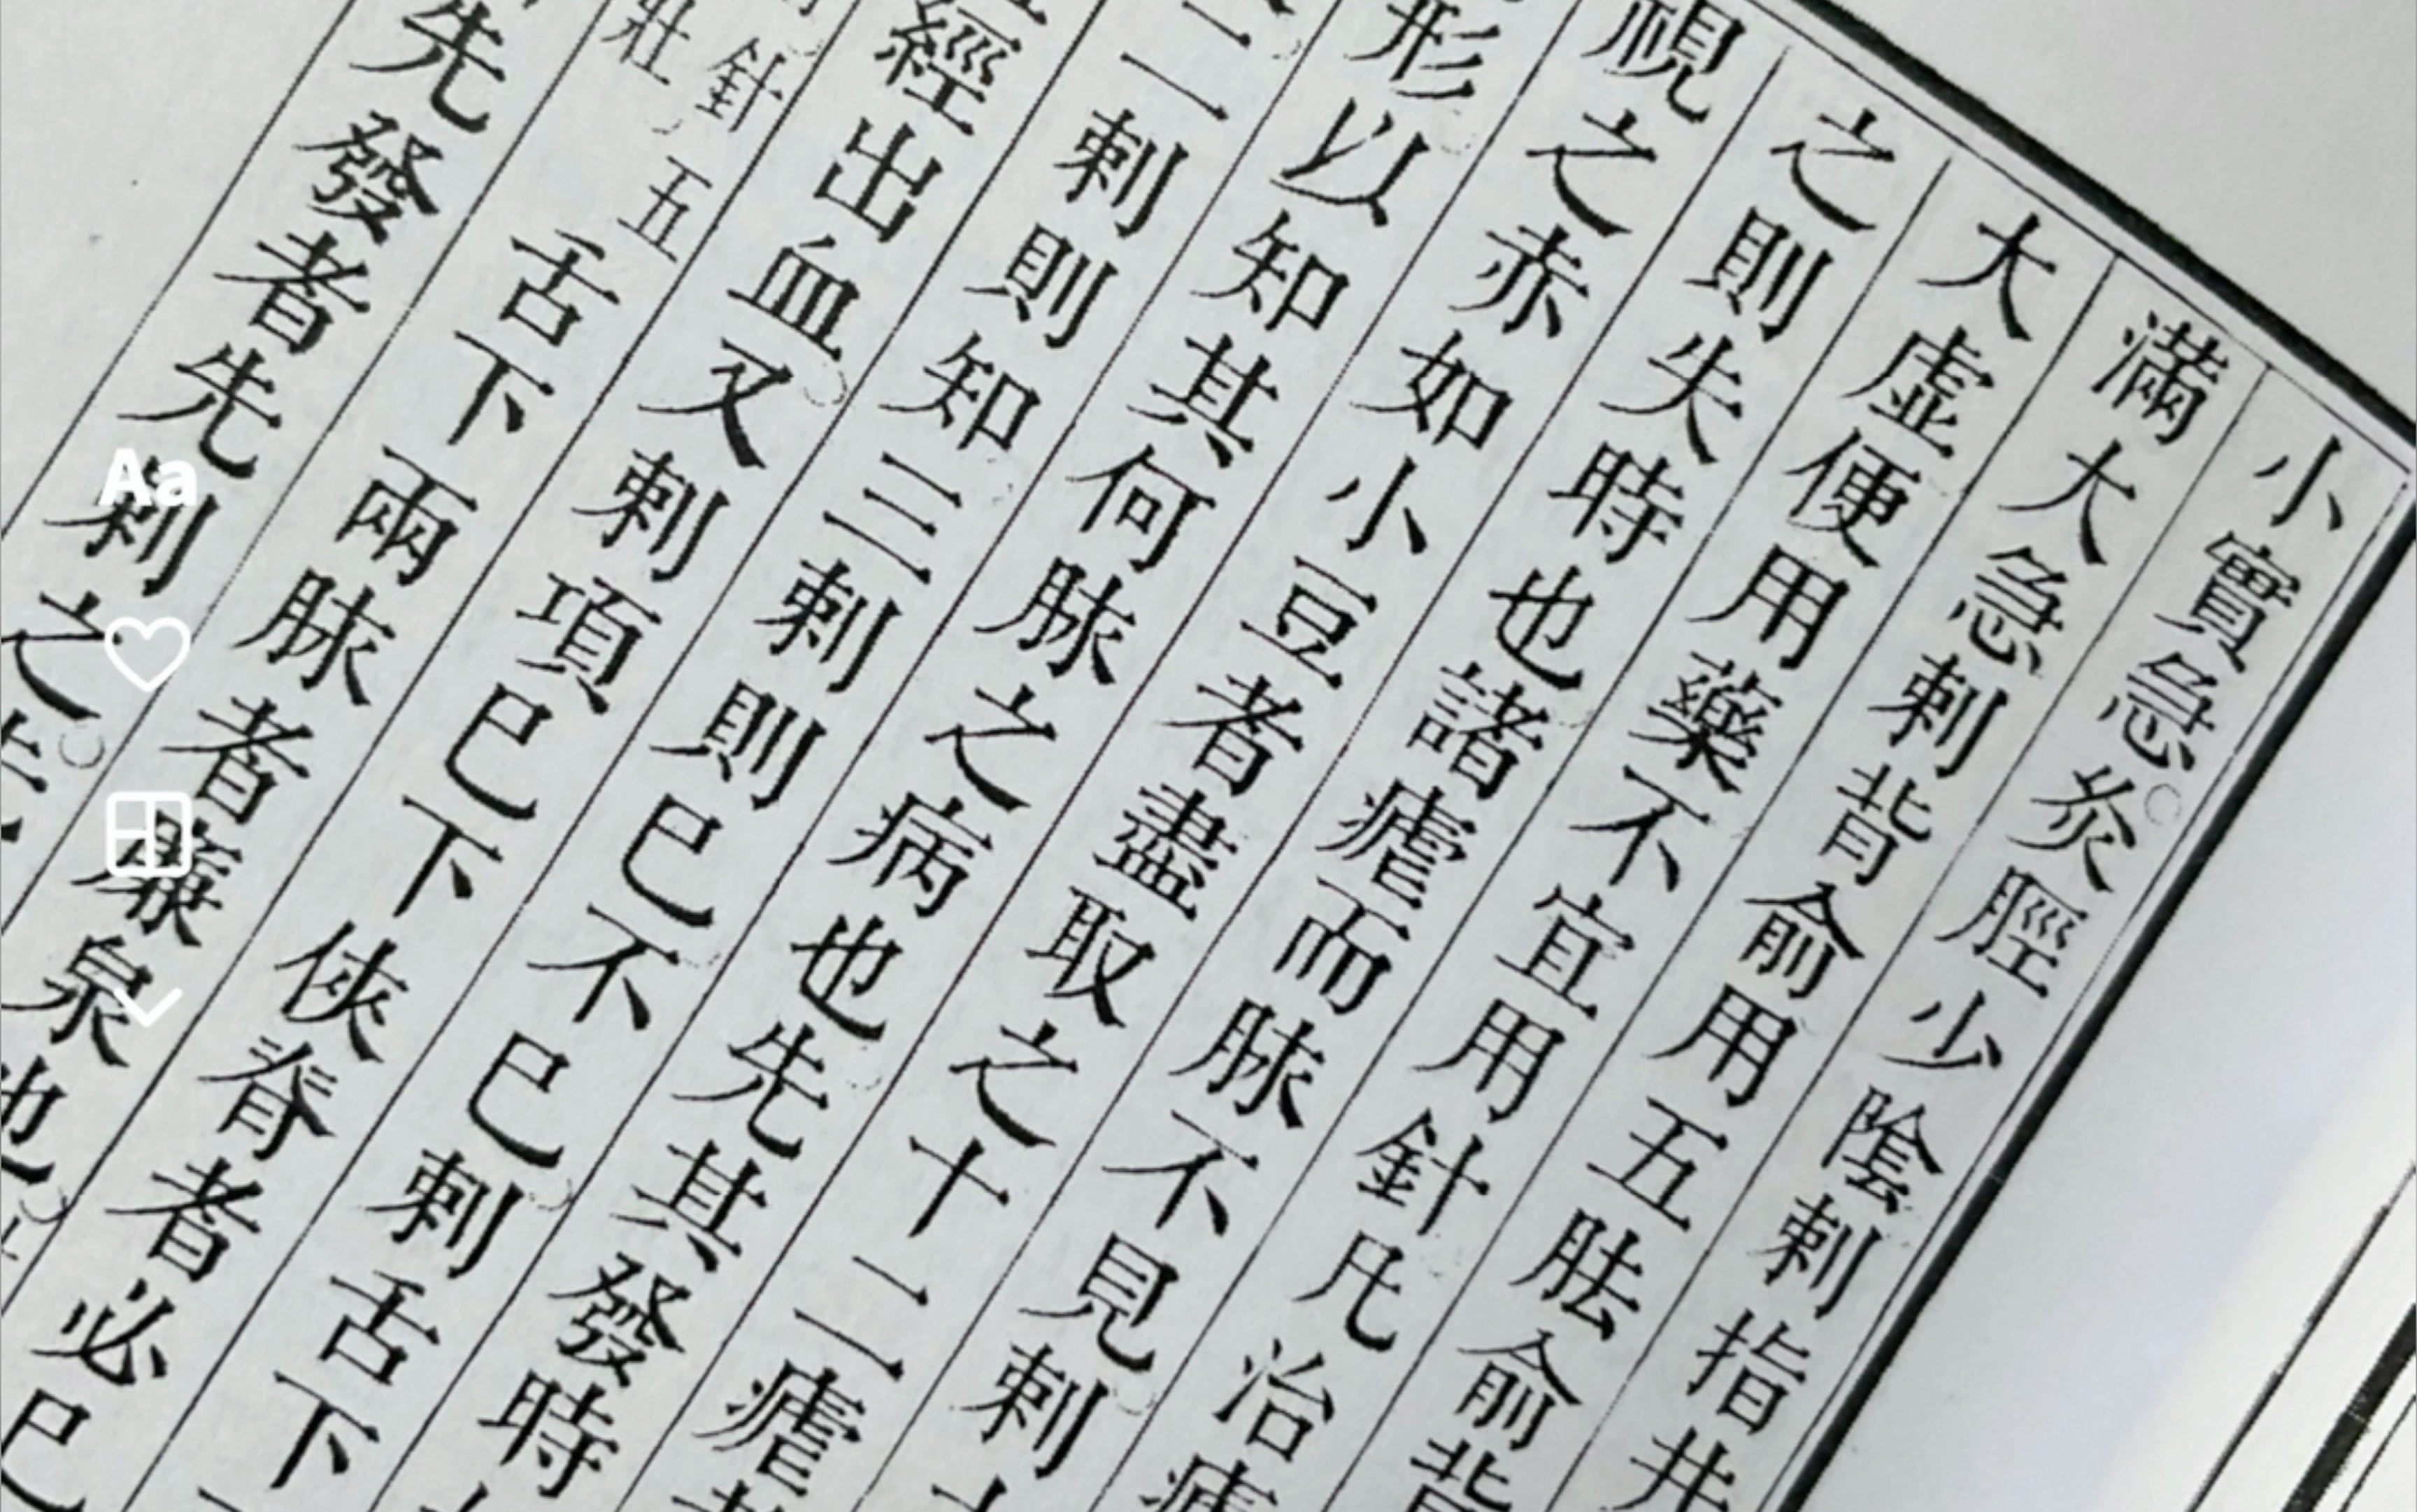 小實急灸脛少陰刺指井
滿大急刺背俞用五胠俞背
大虛便用藥不宜用針凡治瘧
之則失時也諸瘧而脉不見刺
視之赤如小豆者盡取之十二瘧
形以知其何脉之病也先其發時
二刺則知三刺則巳不巳刺舌下
經出血又刺項巳下俠脊者必巳
針五
壯
舌下兩脉者廉泉也
先發者先刺之
Aa